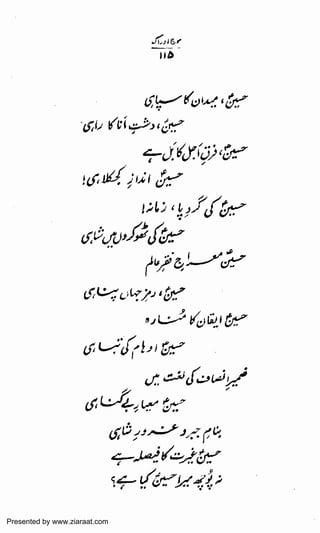 موج ادراک
۱۱۵
حسینؑ، میداں کا سپاہی
حسینؑ، دشتِ اَنا کا راہی
حسینؑ، فرقِ اجل کا بَل ہے
حسینؑ اندازِ کجکلاہی!
حسینؑ کی گردِ پا، زمانہ!
حسینؑ کی ٹھوکروں میں شاہی
حسینؑ معراجِ فقرِ عالم
حسینؑ، رمزِ جہاں پناہی
حسینؑ ایقان کا منارہ
حسینؑ اوہام کی تباہی
ضمیرِ انصاف کی لغت میں
حسینؑ معیارِ بے گناہی
بنامِ جبر و غرورِ شاہی
حسینؑ غیرت کا فیصلہ ہے
نہ پوچھ میرا حسینؑ کیا ہے؟
Presented by www.ziaraat.com